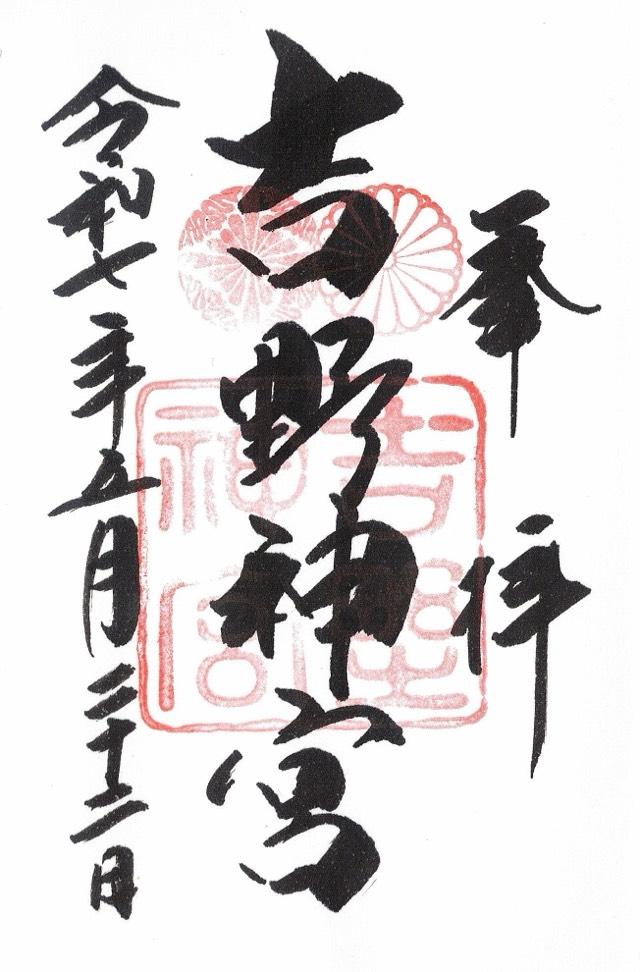 奉拝
吉野神宮
令和七年五月二十二日
吉野神宮